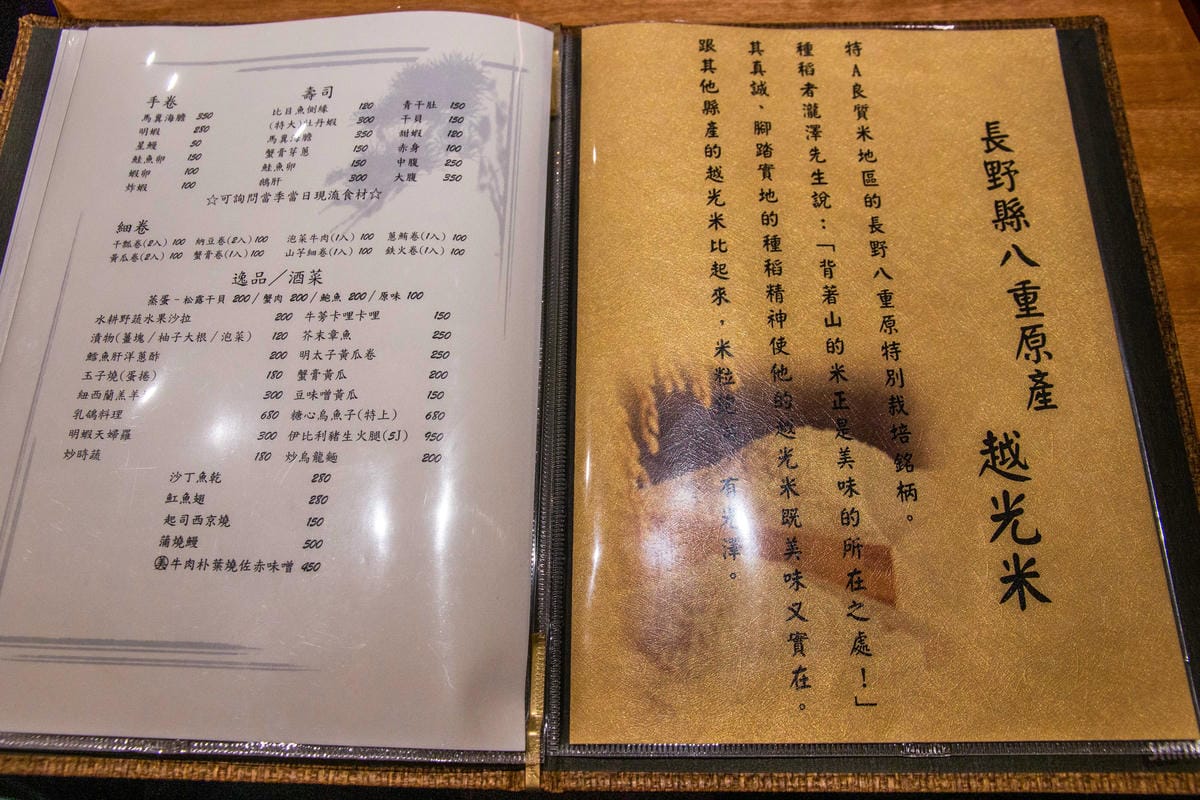 手卷
馬糞海膽 350
明蝦 280
星鰻 50
鮭魚卵 150
蝦卵 100
炸蝦 100
壽司
比目魚側緣 120
(特大)牡丹蝦 300
馬糞海膽 350
蟹膏芽蔥 150
鮭魚卵 150
鵝肝 300
青干肚 150
干貝 150
甜蝦 120
赤身 100
中腹 250
大腹 350
☆可詢問當季當日現流食材☆
細卷
干瓢卷(2入) 100 納豆卷(2入) 100 泡菜牛肉(1入) 100 蔥鮪卷(1入) 100
黃瓜卷(2入) 100 蟹膏卷(1入) 100 山芋細卷(1入) 100 鉄火卷(1入) 100
逸品/酒菜
蒸蛋-松露干貝 200/蟹肉 200/鮑魚 200/原味 100
水耕野蔬水果沙拉 200 牛蒡卡哩卡哩 150
漬物(薑塊/柚子大根/泡菜) 120 芥末章魚 250
鱈魚肝洋蔥酢 200 明太子黃瓜卷 250
玉子燒(蛋捲) 180 蟹膏黃瓜 200
紐西蘭羔羊 300 豆味噌黃瓜 150
乳鴿料理 680 糖心烏魚子(特上) 680
明蝦天婦羅 300 伊比利豬生火腿(5J) 950
炒時蔬 180 炒烏龍麵 200
沙丁魚乾 280
魟魚翅 280
起司西京燒 150
蒲燒鰻 500
牛肉朴葉燒佐赤味噌 450
長野縣八重原產 越光米
特A良質米地區的長野八重原特別栽培銘柄。
種稻者瀧澤先生說：「背著山的米正是美味的所在之處！」
其真誠、腳踏實地的種稻精神使他的越光米既美味又實在。
跟其他縣產的越光米比起來，米粒 有光澤。